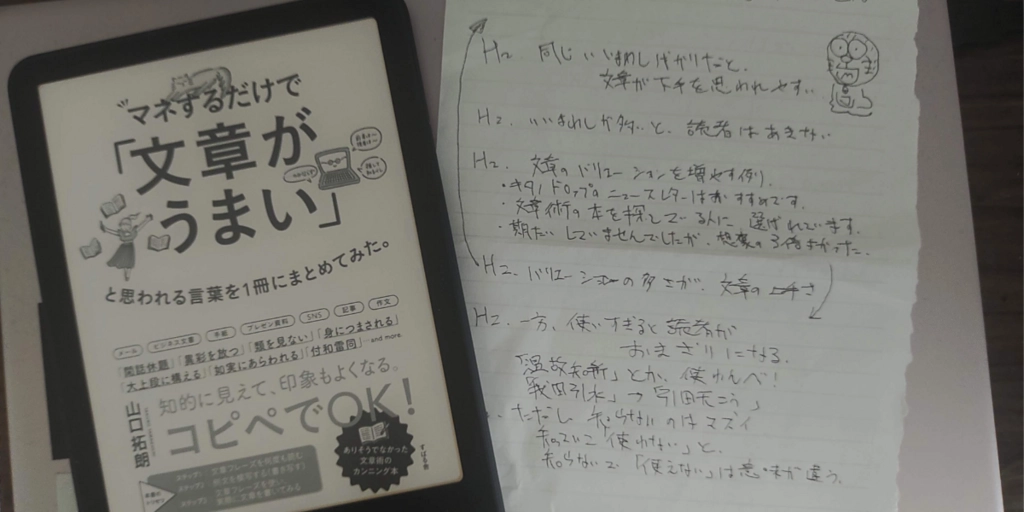 マネするだけで
「文章が
うまい」
と思われる言葉を1冊にまとめてみた。
メール
ビジネス文書
企画
プレゼン資料
SNS
記事
作文
「閑話休題」「異彩を放つ」「類を見ない」「身につまされる」
「大上段に構える」「如実にあらわれる」「付和雷同」…and more.
知的に見えて、印象もよくなる。
コピペでOK!
山口拓朗
ありそうでなかった
文章術の
カンニング本
すばる舎
H2 同じいいまわしばかりだと、
文章が下手と思われやすい
H2. いいまわしが多いと、読者はあきない
H2. 文章のバリエーションを増やす例り
・キタノドロップのニュースレターはおすすめです。
・文章術の本を探している人に、選ばれています。
・期たいしていませんでしたが、想像の3倍よかった。
H2. バリエーションの多さが、文章の
H2. 一方、使いすぎると読者が
おきざりになる。
「温故知新」とか、使わんべ!
「我田引水」→「引田天こう」
ただし 知らないのはマズイ
知っていて「使わない」と
知らないで「使えない」は意味が違う。